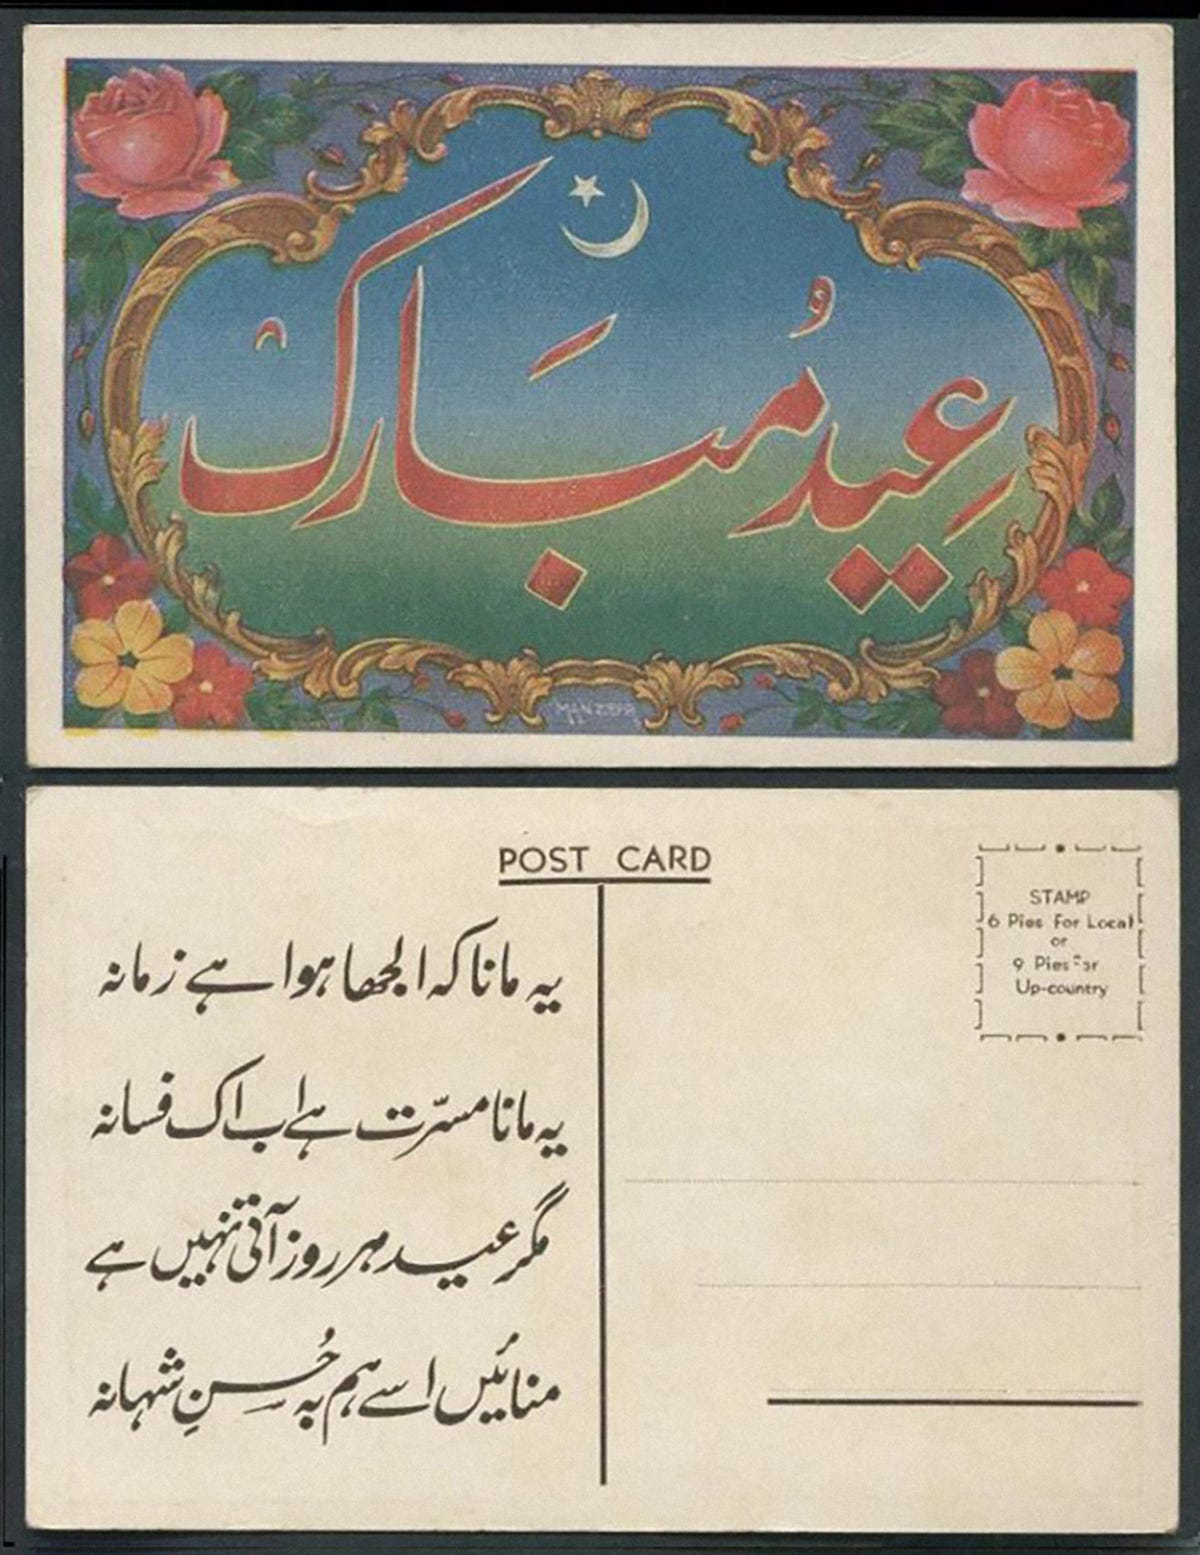 عید مُبَارک
MANZAR
POST CARD
STAMP
6 Pies For Local
or
9 Pies For
Up-country
یہ مانا کہ الجھا ہوا ہے زمانہ
یہ مانا مسرّت ہے اب اک فسانہ
مگر عید ہر روز آتی نہیں ہے
منائیں اسے ہم بہ حُسنِ شہانہ